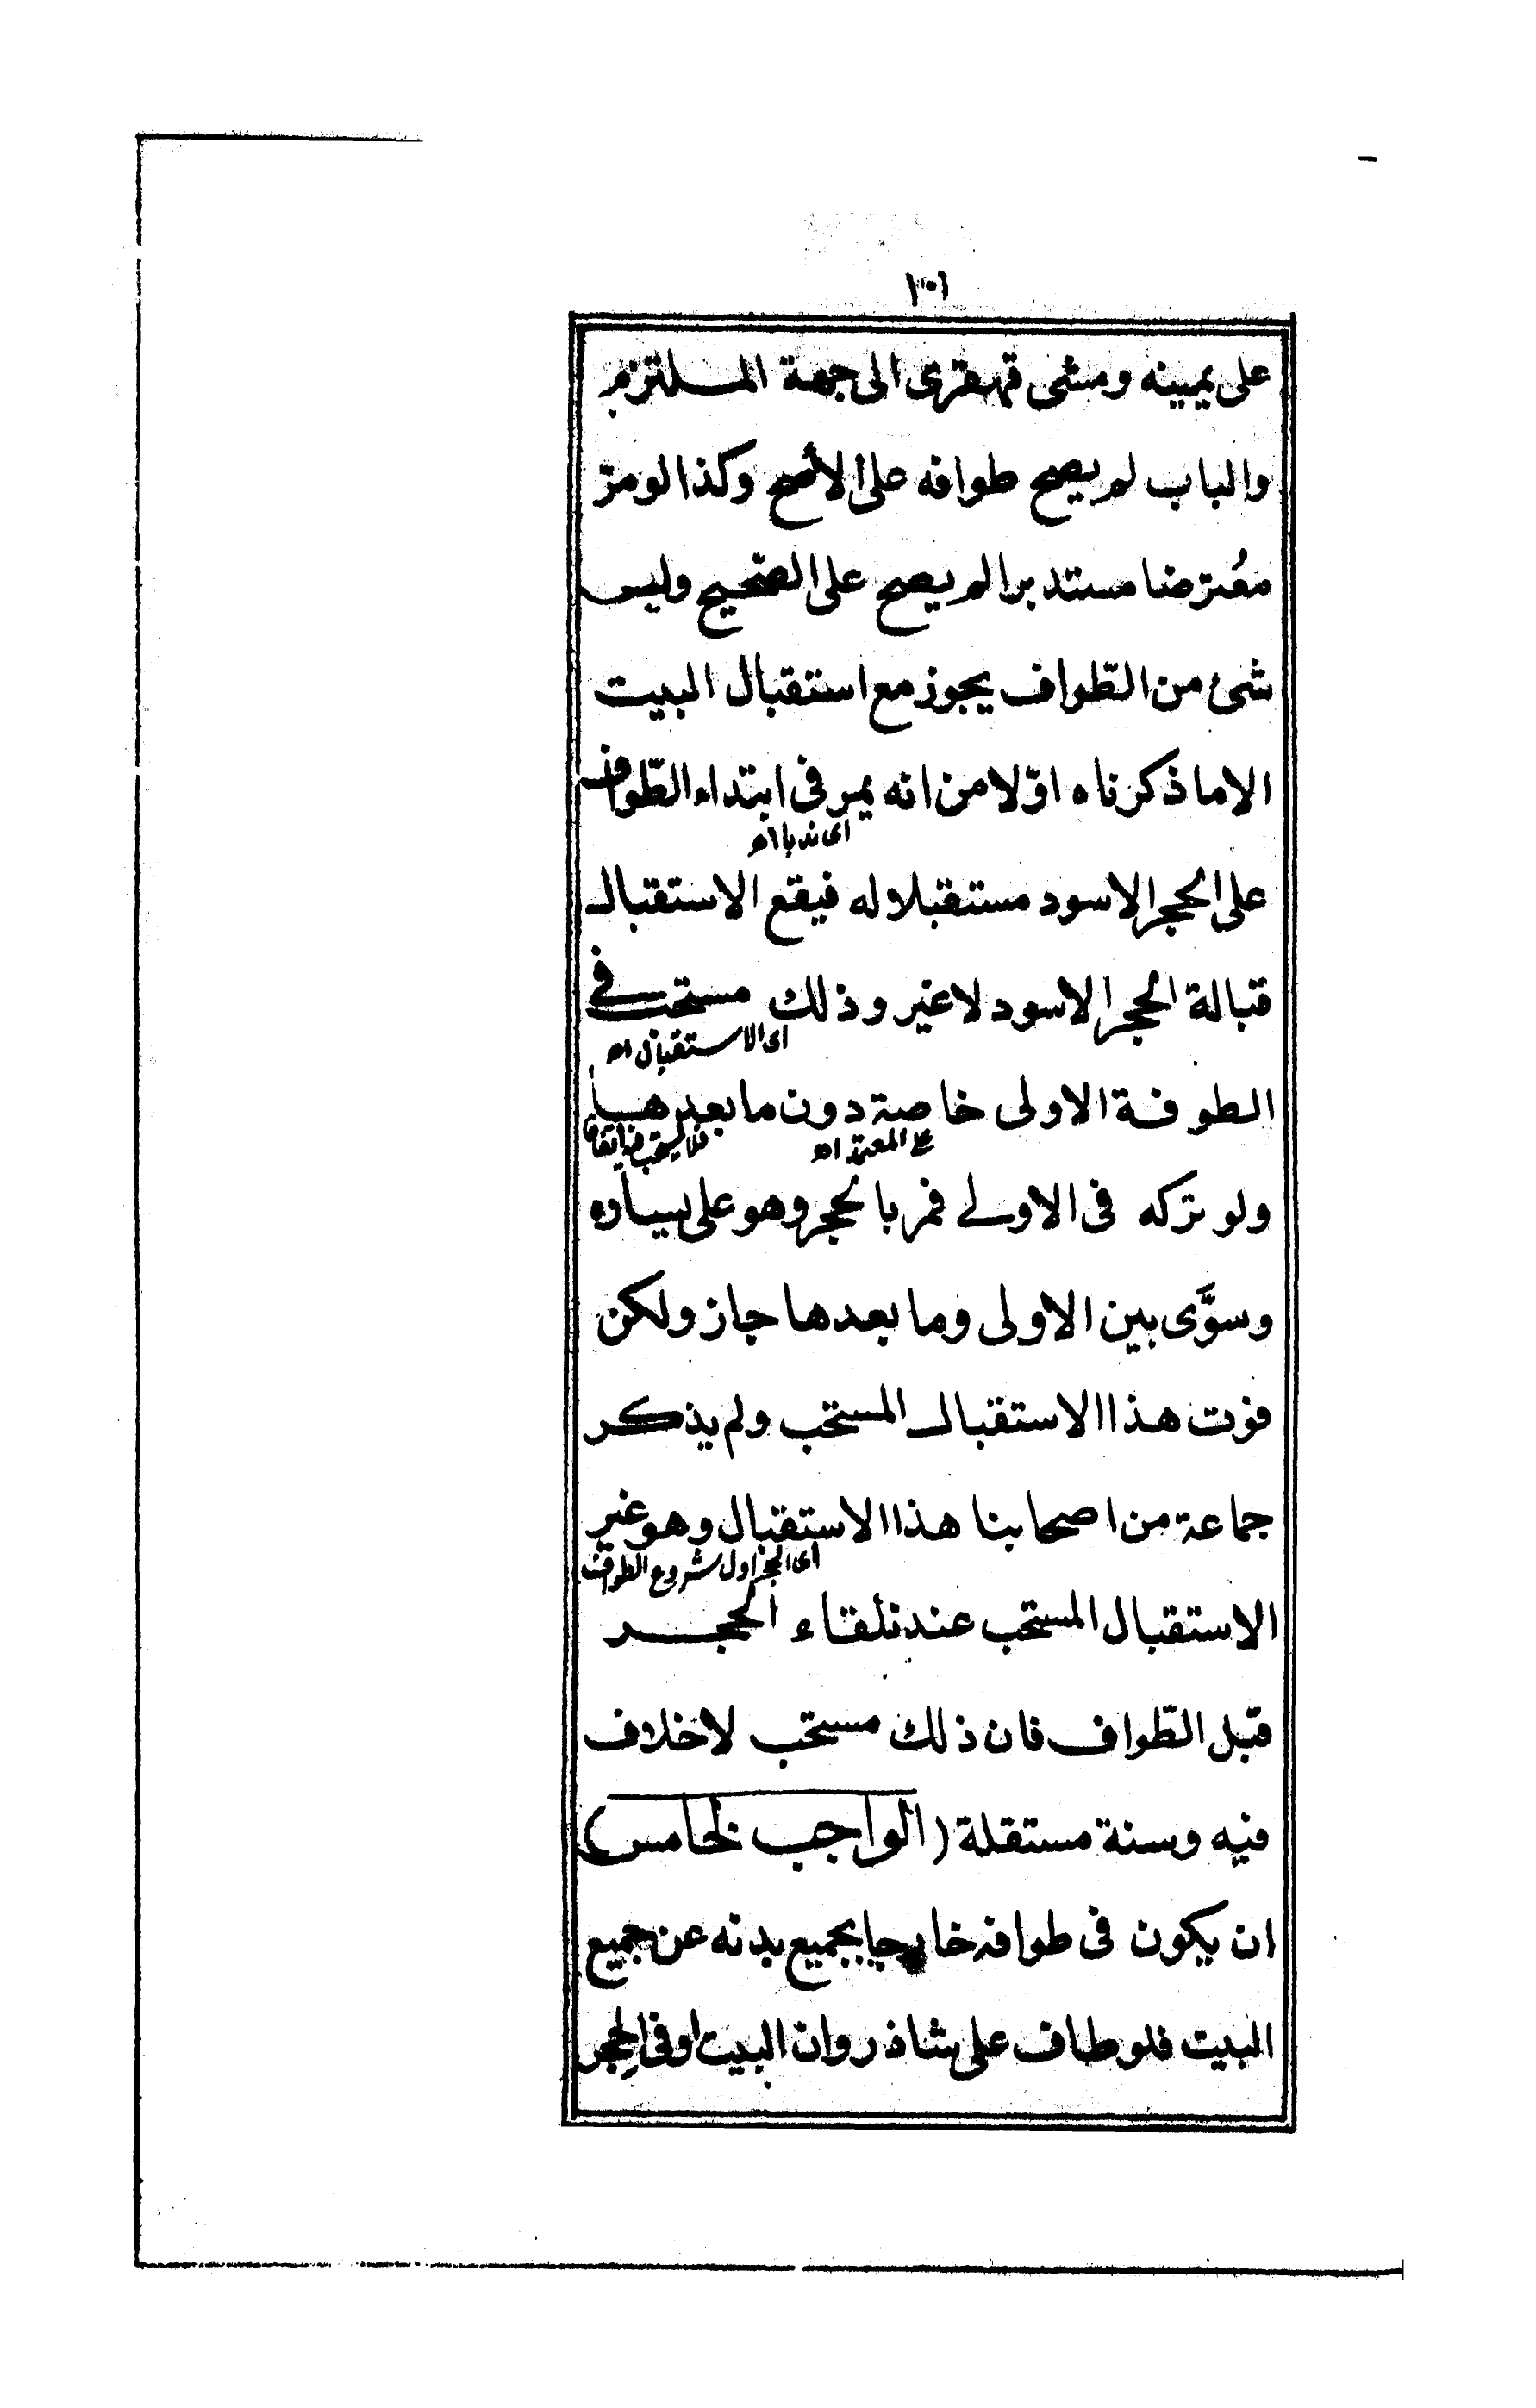 ١٠١
على يمينه ومشى قهقرى الى جهة الملتزم
والباب لم يصح طوافه على الأصح وكذا لو مرّ
معُترضا مستدبرا لم يصح على الصّحيح وليس
شئ من الطّواف يجوز مع استقبال البيت
الا ما ذكرناه اوّلا من انه يمر فى ابتداء الطّواف
اى ندبا اهـ
على الحجر الاسود مستقبلا له فيقع الاستقبال
قبالة الحجر الاسود لا غير وذلك مستحب فى
اى الاستقبال اهـ
الطوفة الاولى خاصة دون ما بعدها
على المعتمد اهـ فلا يستحب فيه اتفاقا
ولو تركه فى الاولى فمر بالحجر وهو على يساره
وسوَّى بين الاولى وما بعدها جاز ولكن
فوت هذا الاستقبال المستحب ولم يذكر
جماعة من اصحابنا هذا الاستقبال وهو غير
اى الحجر اول شروع الطواف
الاستقبال المستحب عند تلقاء الحجر
قبل الطّواف فان ذلك مستحب لا خلاف
فيه وسنة مستقلة (الواجب الخامس)
ان يكون فى طوافه خارجا بجميع بدنه عن جميع
البيت فلو طاف على شاذروان البيت او فى الحِجر